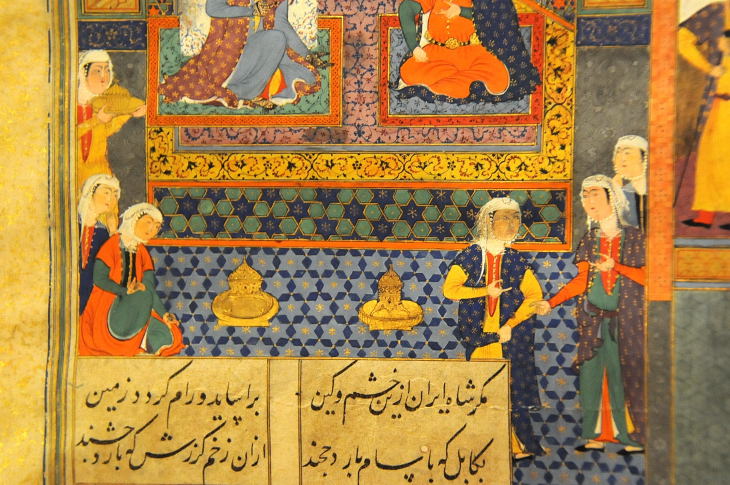 مکر شاه ایران ازین خشم وکین براساید و رام کردد زمین
بکابل که با سام یارد چخید ازان زخم کرزش که یارد چشید